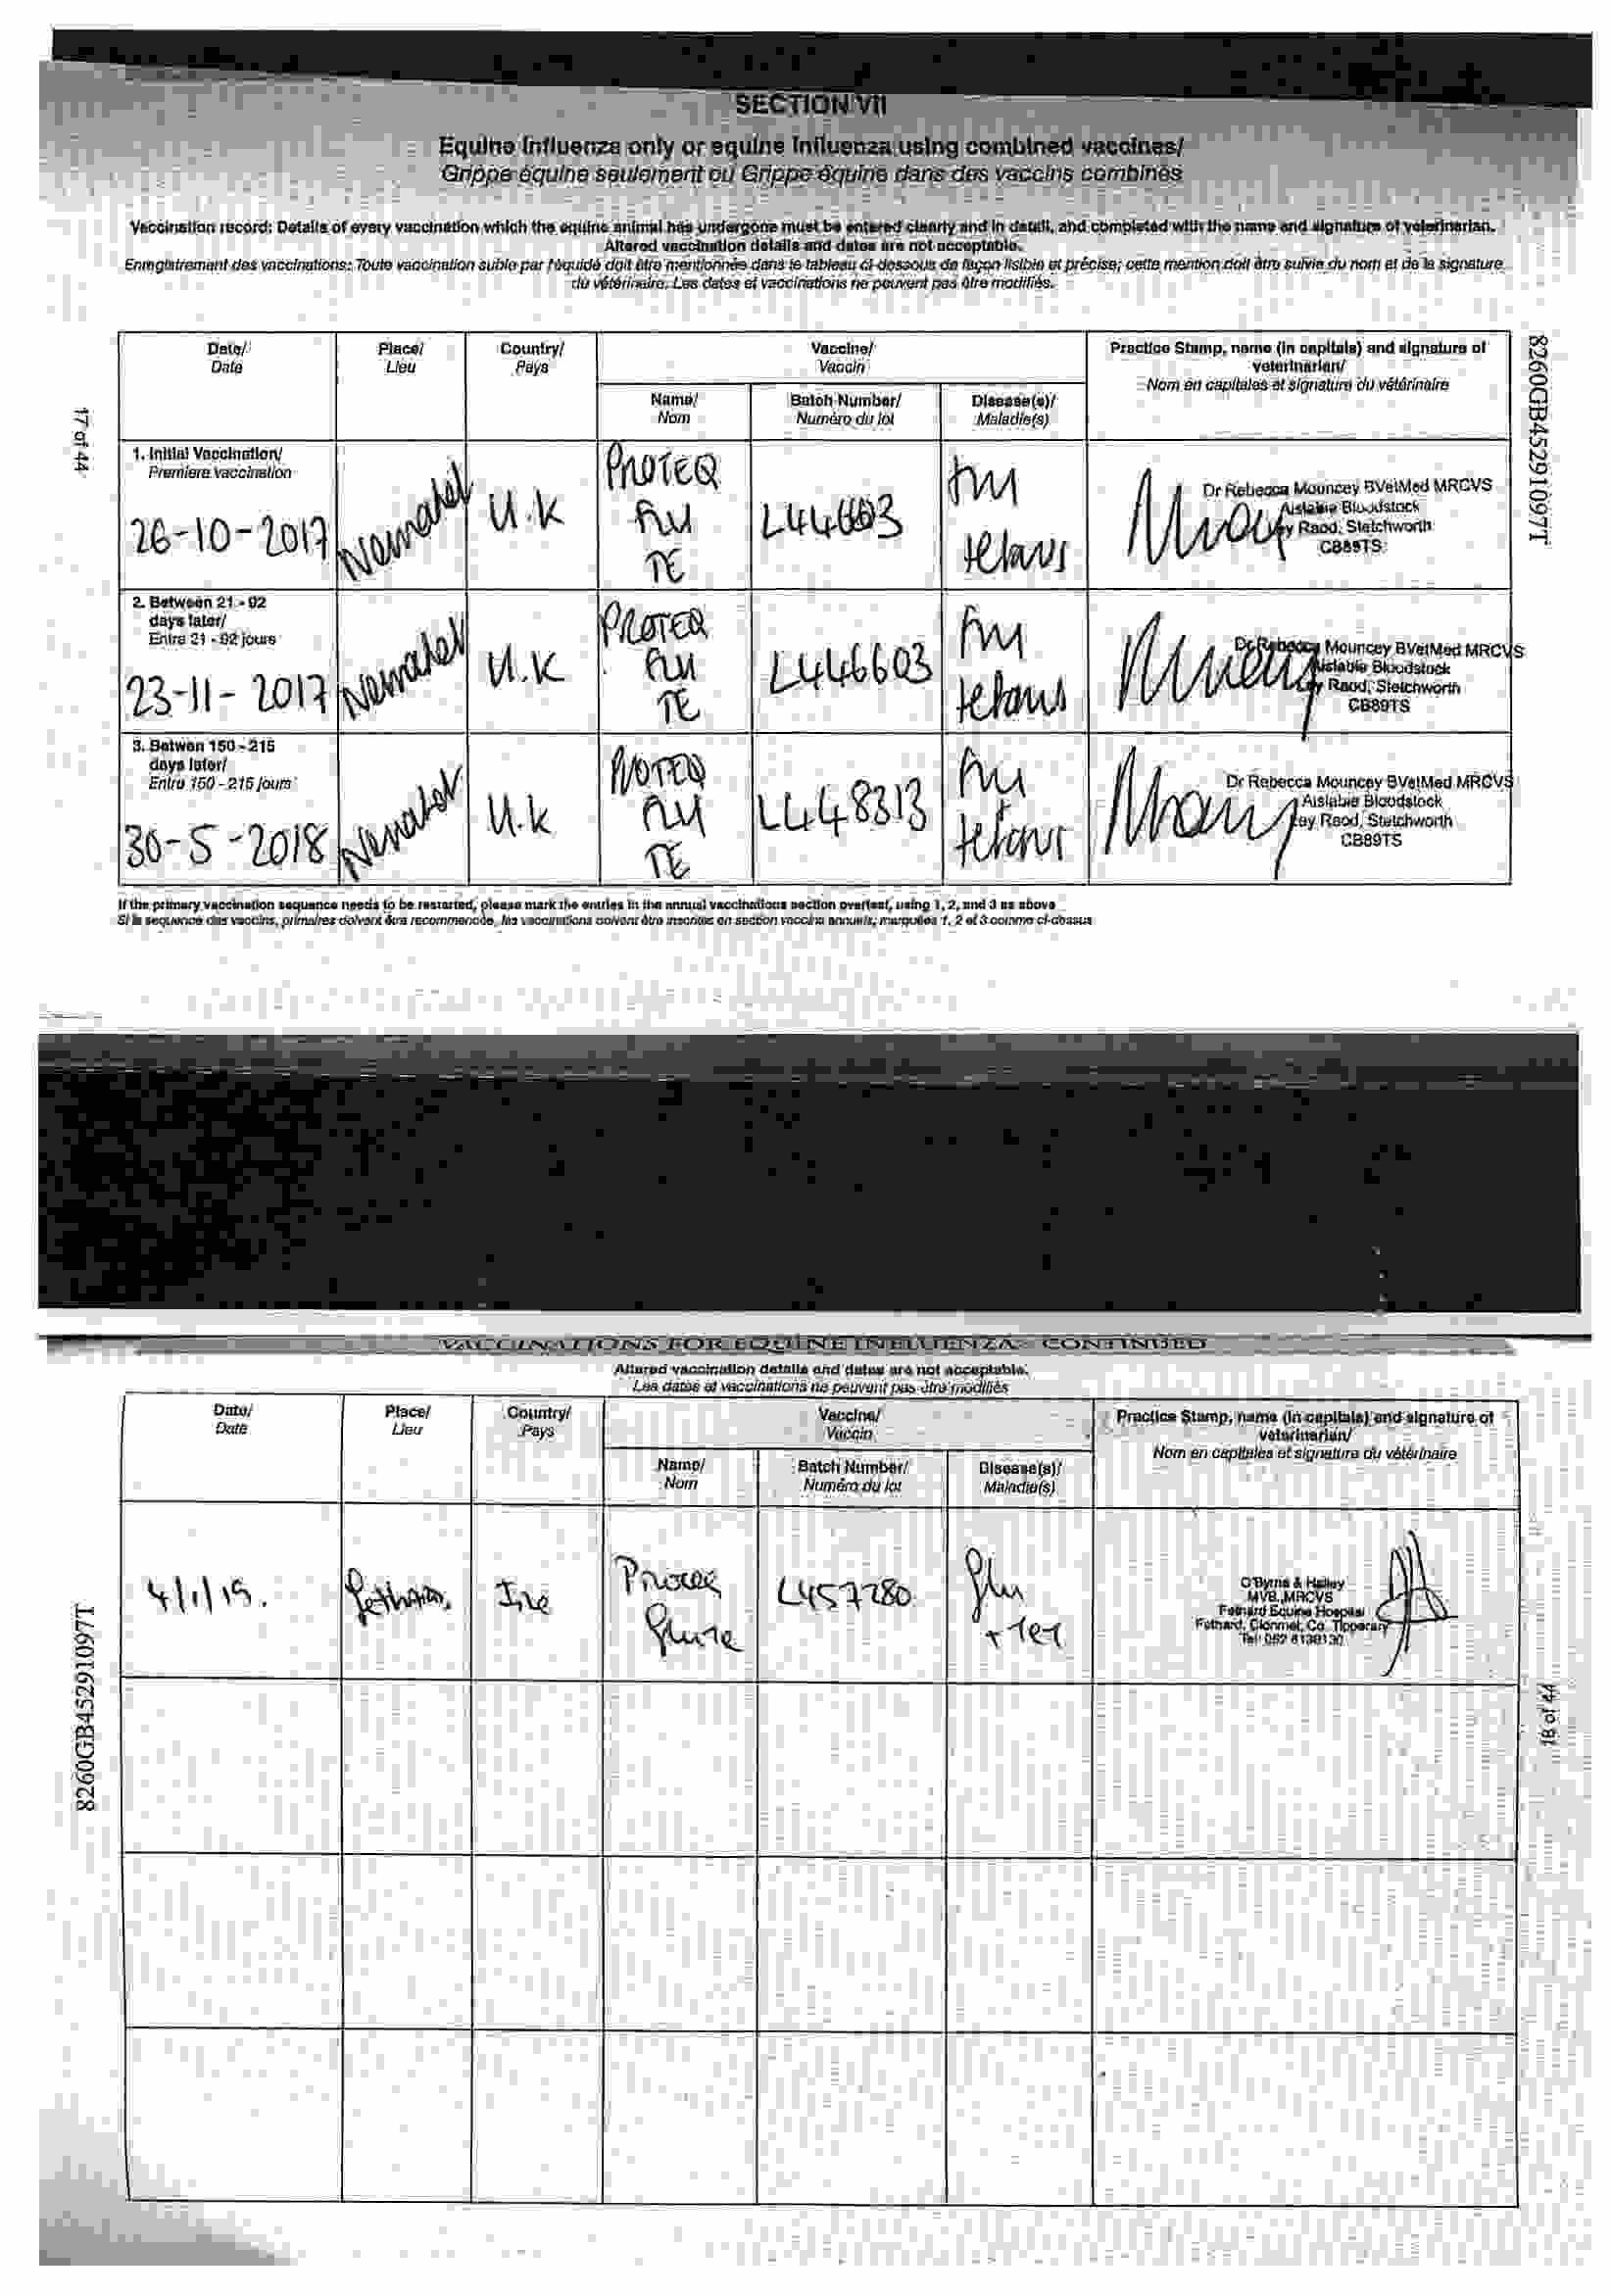 SECTION VII
Equine Influenza only or equine Influenza using combined vaccines/
Grippe équine seulement ou Grippe équine dans des vaccins combinés
Vaccination record: Details of every vaccination which the equine animal has undergone must be entered clearly and in detail, and completed with the name and signature of veterinarian.
Altered vaccination details and dates are not acceptable.
Enregistrement des vaccinations: Toute vaccination subie par l'équidé doit être mentionnée dans le tableau ci-dessous de façon lisible et précise; cette mention doit être suivie du nom et de la signature
du vétérinaire. Les dates et vaccinations ne peuvent pas être modifiés.
17 of 44
8260GB45291097T
Date/ Place/ Country/ Vaccine/ Practice Stamp, name (in capitals) and signature of
Date Lieu Pays Vaccin veterinarian/
Nom en capitales et signature du vétérinaire
Name/ Batch Number/ Disease(s)/
Nom Numéro du lot Maladie(s)
1. Initial Vaccination/
Premiere vaccination
26-10-2017 Newmarket U.K PROTEQ FLU TE L446603 Flu tetanus
Dr Rebecca Mouncey BVetMed MRCVS
Aislabie Bloodstock
Ley Raod, Stetchworth
CB89TS
2. Between 21 - 92
days later/
Entre 21 - 92 jours
23-11-2017 Newmarket U.K PROTEQ FLU TE L446603 Flu tetanus
Dr Rebecca Mouncey BVetMed MRCVS
Aislabie Bloodstock
Ley Raod, Stetchworth
CB89TS
3. Betwen 150 - 215
days later/
Entre 150 - 215 jours
30-5-2018 Newmarket U.K PROTEQ FLU TE L448313 Flu tetanus
Dr Rebecca Mouncey BVetMed MRCVS
Aislabie Bloodstock
Ley Raod, Stetchworth
CB89TS
If the primary vaccination sequence needs to be restarted, please mark the entries in the annual vaccinations section overleaf, using 1, 2, and 3 as above
Si la sequence des vaccins, primaires doivent être recommencée, les vaccinations doivent être inscrites en section vaccins annuels, marquées 1, 2 et 3 comme ci-dessus
VACCINATIONS FOR EQUINE INFLUENZA - CONTINUED
Altered vaccination details and dates are not acceptable.
Les dates et vaccinations ne peuvent pas être modifiés
Date/ Place/ Country/ Vaccine/ Practice Stamp, name (in capitals) and signature of
Date Lieu Pays Vaccin veterinarian/
Nom en capitales et signature du vétérinaire
Name/ Batch Number/ Disease(s)/
Nom Numéro du lot Maladie(s)
4/1/19. Fethard, Ire Proteq Flu Te L457280 Flu + Tet
O'Byrne & Halley
MVB, MRCVS
Fethard Equine Hospital
Fethard, Clonmel, Co. Tipperary
Tel: 052 6130130
8260GB45291097T
18 of 44